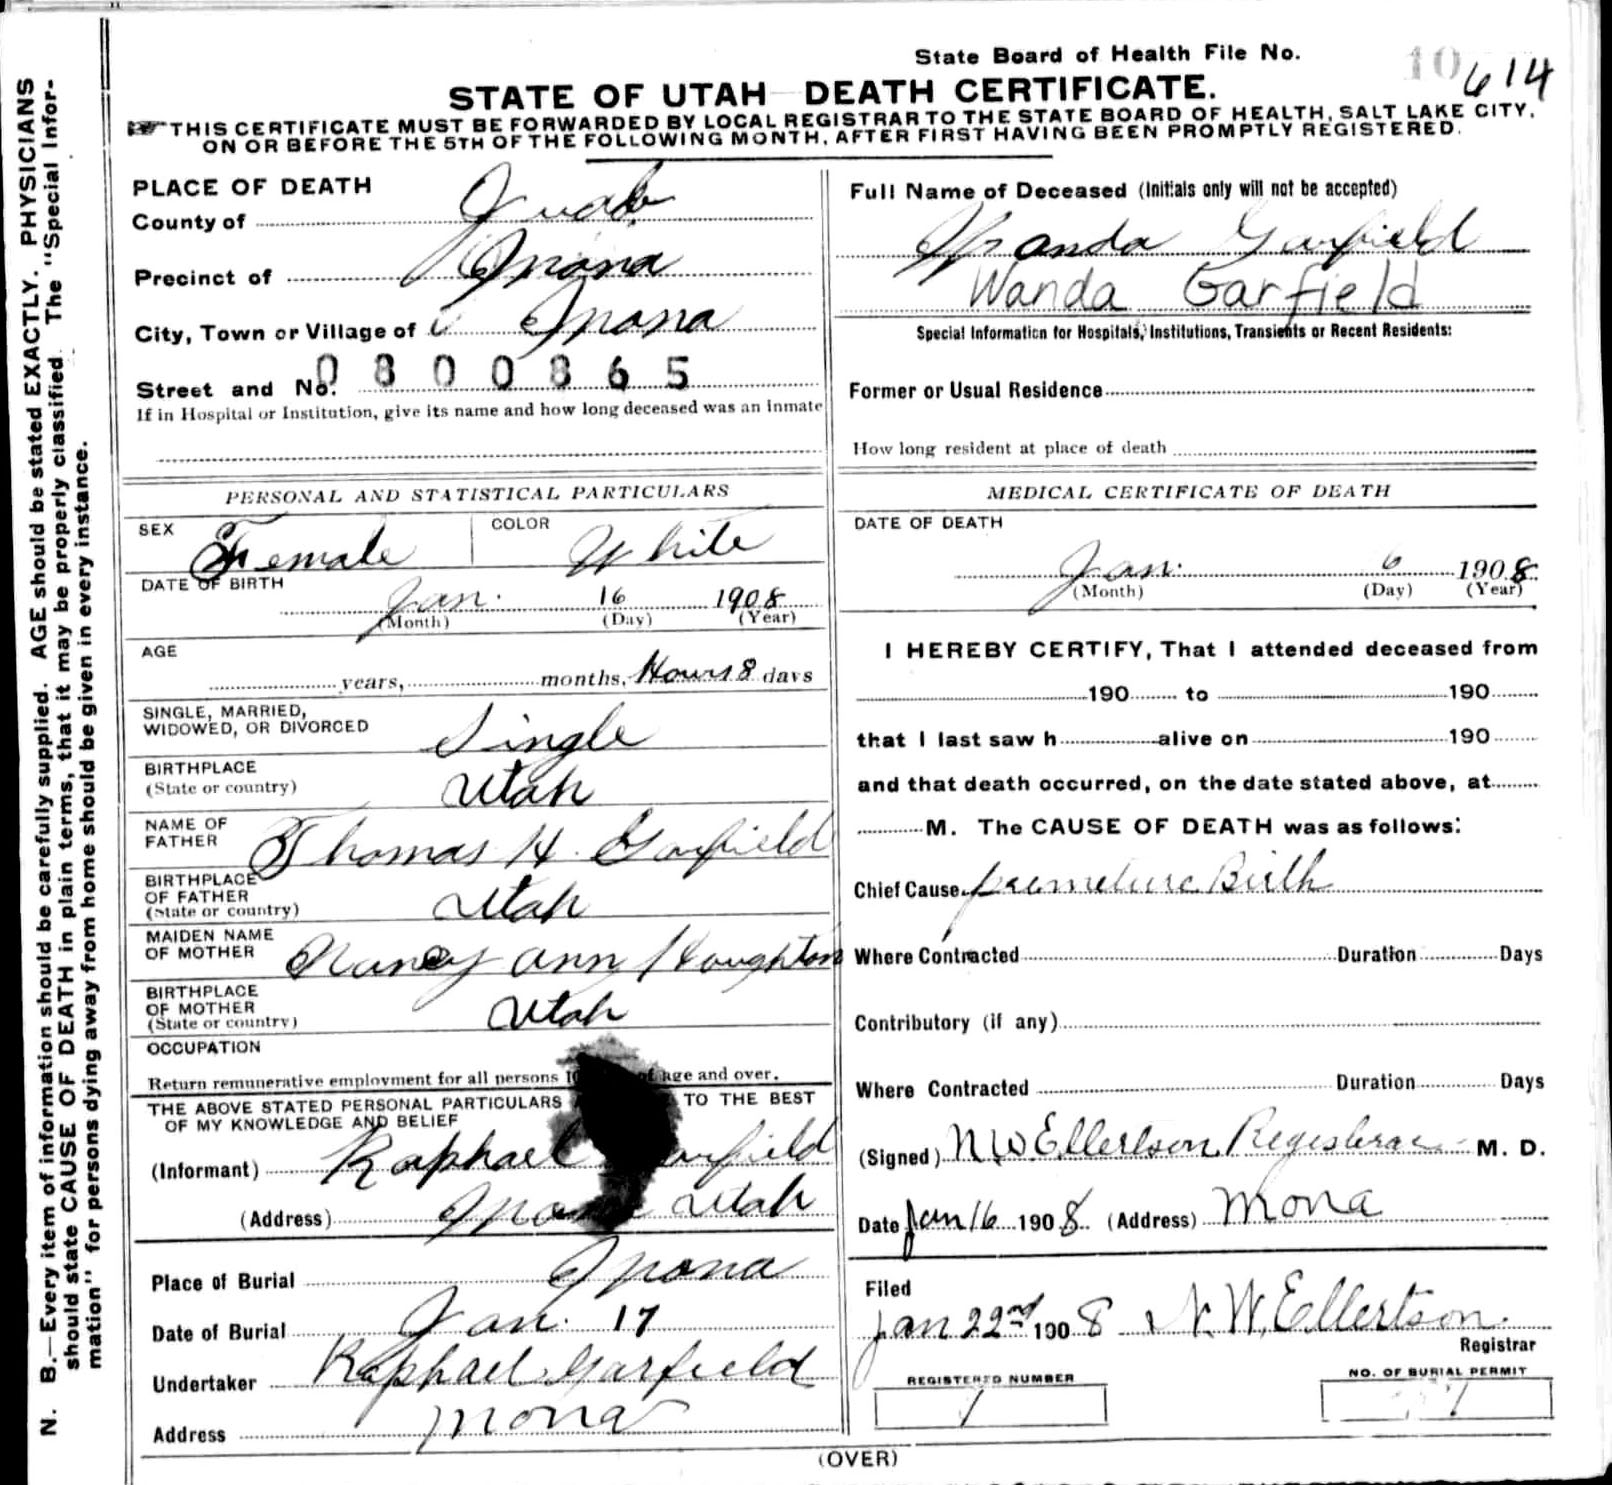 State Board of Health File No. 10 614
STATE OF UTAH DEATH CERTIFICATE.
THIS CERTIFICATE MUST BE FORWARDED BY LOCAL REGISTRAR TO THE STATE BOARD OF HEALTH, SALT LAKE CITY,
ON OR BEFORE THE 5TH OF THE FOLLOWING MONTH, AFTER FIRST HAVING BEEN PROMPTLY REGISTERED.
N. B.—Every item of information should be carefully supplied. AGE should be stated EXACTLY. PHYSICIANS
should state CAUSE OF DEATH in plain terms, that it may be properly classified. The "Special Infor-
mation" for persons dying away from home should be given in every instance.
PLACE OF DEATH
County of Juab
Precinct of Mona
City, Town or Village of Mona
Street and No. 0800865
If in Hospital or Institution, give its name and how long deceased was an inmate
PERSONAL AND STATISTICAL PARTICULARS
SEX Female COLOR White
DATE OF BIRTH
Jan. 16 1908
(Month) (Day) (Year)
AGE
years, months, Hours 8 days
SINGLE, MARRIED,
WIDOWED, OR DIVORCED Single
BIRTHPLACE
(State or country) Utah
NAME OF
FATHER Thomas H. Garfield
BIRTHPLACE
OF FATHER
(State or country) Utah
MAIDEN NAME
OF MOTHER Nancy Ann Houghton
BIRTHPLACE
OF MOTHER
(State or country) Utah
OCCUPATION
Return remunerative employment for all persons 10 of age and over.
THE ABOVE STATED PERSONAL PARTICULARS TO THE BEST
OF MY KNOWLEDGE AND BELIEF
(Informant) Raphael Garfield
(Address) Mona Utah
Place of Burial Mona
Date of Burial Jan. 17
Undertaker Raphael Garfield
Address Mona
Full Name of Deceased (Initials only will not be accepted)
Wanda Garfield
Wanda Garfield
Special Information for Hospitals, Institutions, Transients or Recent Residents:
Former or Usual Residence
How long resident at place of death
MEDICAL CERTIFICATE OF DEATH
DATE OF DEATH
Jan. 6 1908
(Month) (Day) (Year)
I HEREBY CERTIFY, That I attended deceased from
190 to 190
that I last saw h alive on 190
and that death occurred, on the date stated above, at
M. The CAUSE OF DEATH was as follows:
Chief Cause premeture Birth
Where Contracted Duration Days
Contributory (if any)
Where Contracted Duration Days
(Signed) N.W. Ellertson, Regesterar M. D.
Date Jan 16 1908. (Address) Mona
Filed
Jan 22nd 1908 N. W. Ellertson
Registrar
REGISTERED NUMBER
1
NO. OF BURIAL PERMIT
(OVER)